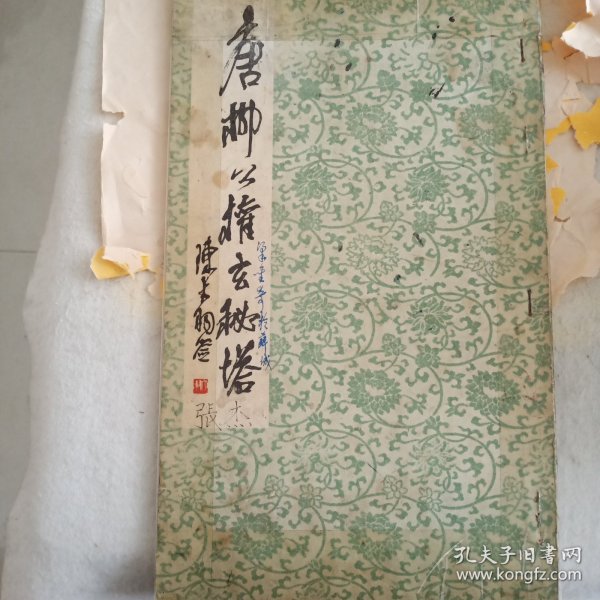 唐柳公權玄秘塔
陳大羽簽
張杰
孔夫子旧书网
www.kongfz.com